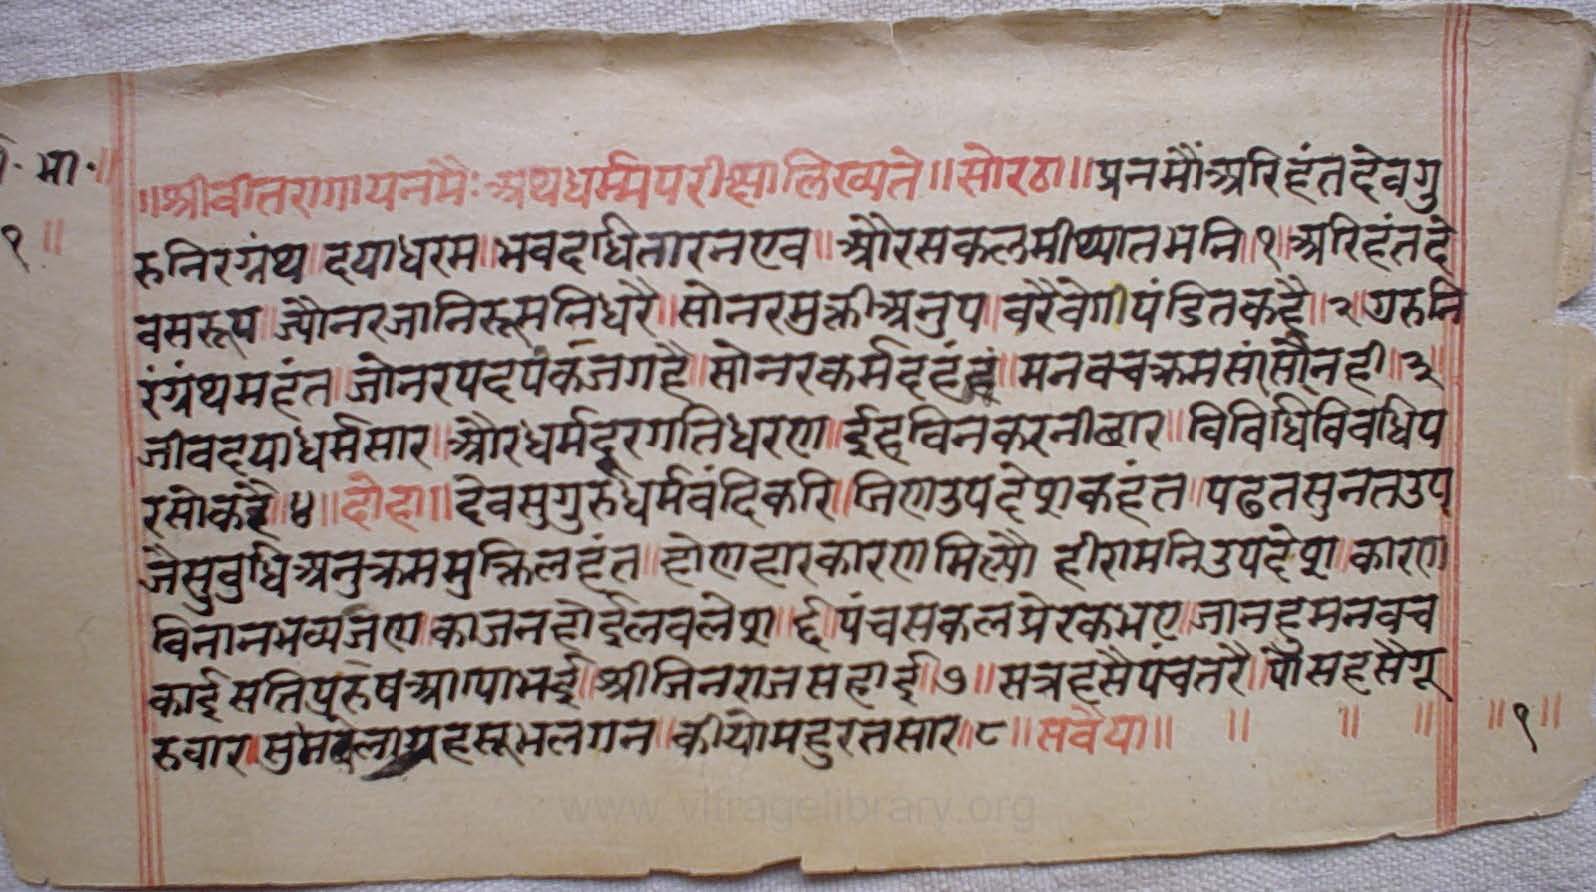 ॥श्रीवीतरागायनमैः अथधर्म्मपरीक्षालिख्यते॥सोरठा॥प्रनमौंअरिहंतदेवगु
रुनिरग्रंथ॥दयाधरम॥भवदधितारनएव॥औरसकलमीथ्यातमनि॥१॥अरिहंतदे
वसरूप॥ज्यौनरजानिरूसतिधरै॥सोनरमुक्तीअनुप॥वरैवेगीपंडितकहै॥२॥गुरुनि
रंग्रंथमहंत॥जोनरपदपंकजगहै॥सोनरकर्मदहंत॥मनवचक्रमसांसौनही॥३॥
जीवदयाधर्मसार॥औरधर्मदूरगतिधरण॥ईहविनकरनीछार॥विविधिविवधिप
रसोकहै॥४॥दोहा॥देवसुगुरुधर्मवंदिकरि॥जिणउपदेशकहंत॥पढतसुनतउप
जैसुवुधिअनुक्रममुक्तिलहंत॥होणहारकारणमिल्यौ हीरामनिउपदेश॥कारण
विनानभव्यजण॥काजनहोईलवलेश॥६॥पंचसकलप्रेरकभए॥जानहुमनवच
काईसतिपुरुषआपाभई॥श्रीजिनराजसहाई॥७॥सत्रहसैपंचतरै॥पौसहसैगू
रुवार॥ग्रहसूभलगन॥कीयौमहुरतसार॥८॥सवैया॥ ॥ ॥ ॥ ॥१॥
मा॰॥
१॥
www.vitragelibrary.org